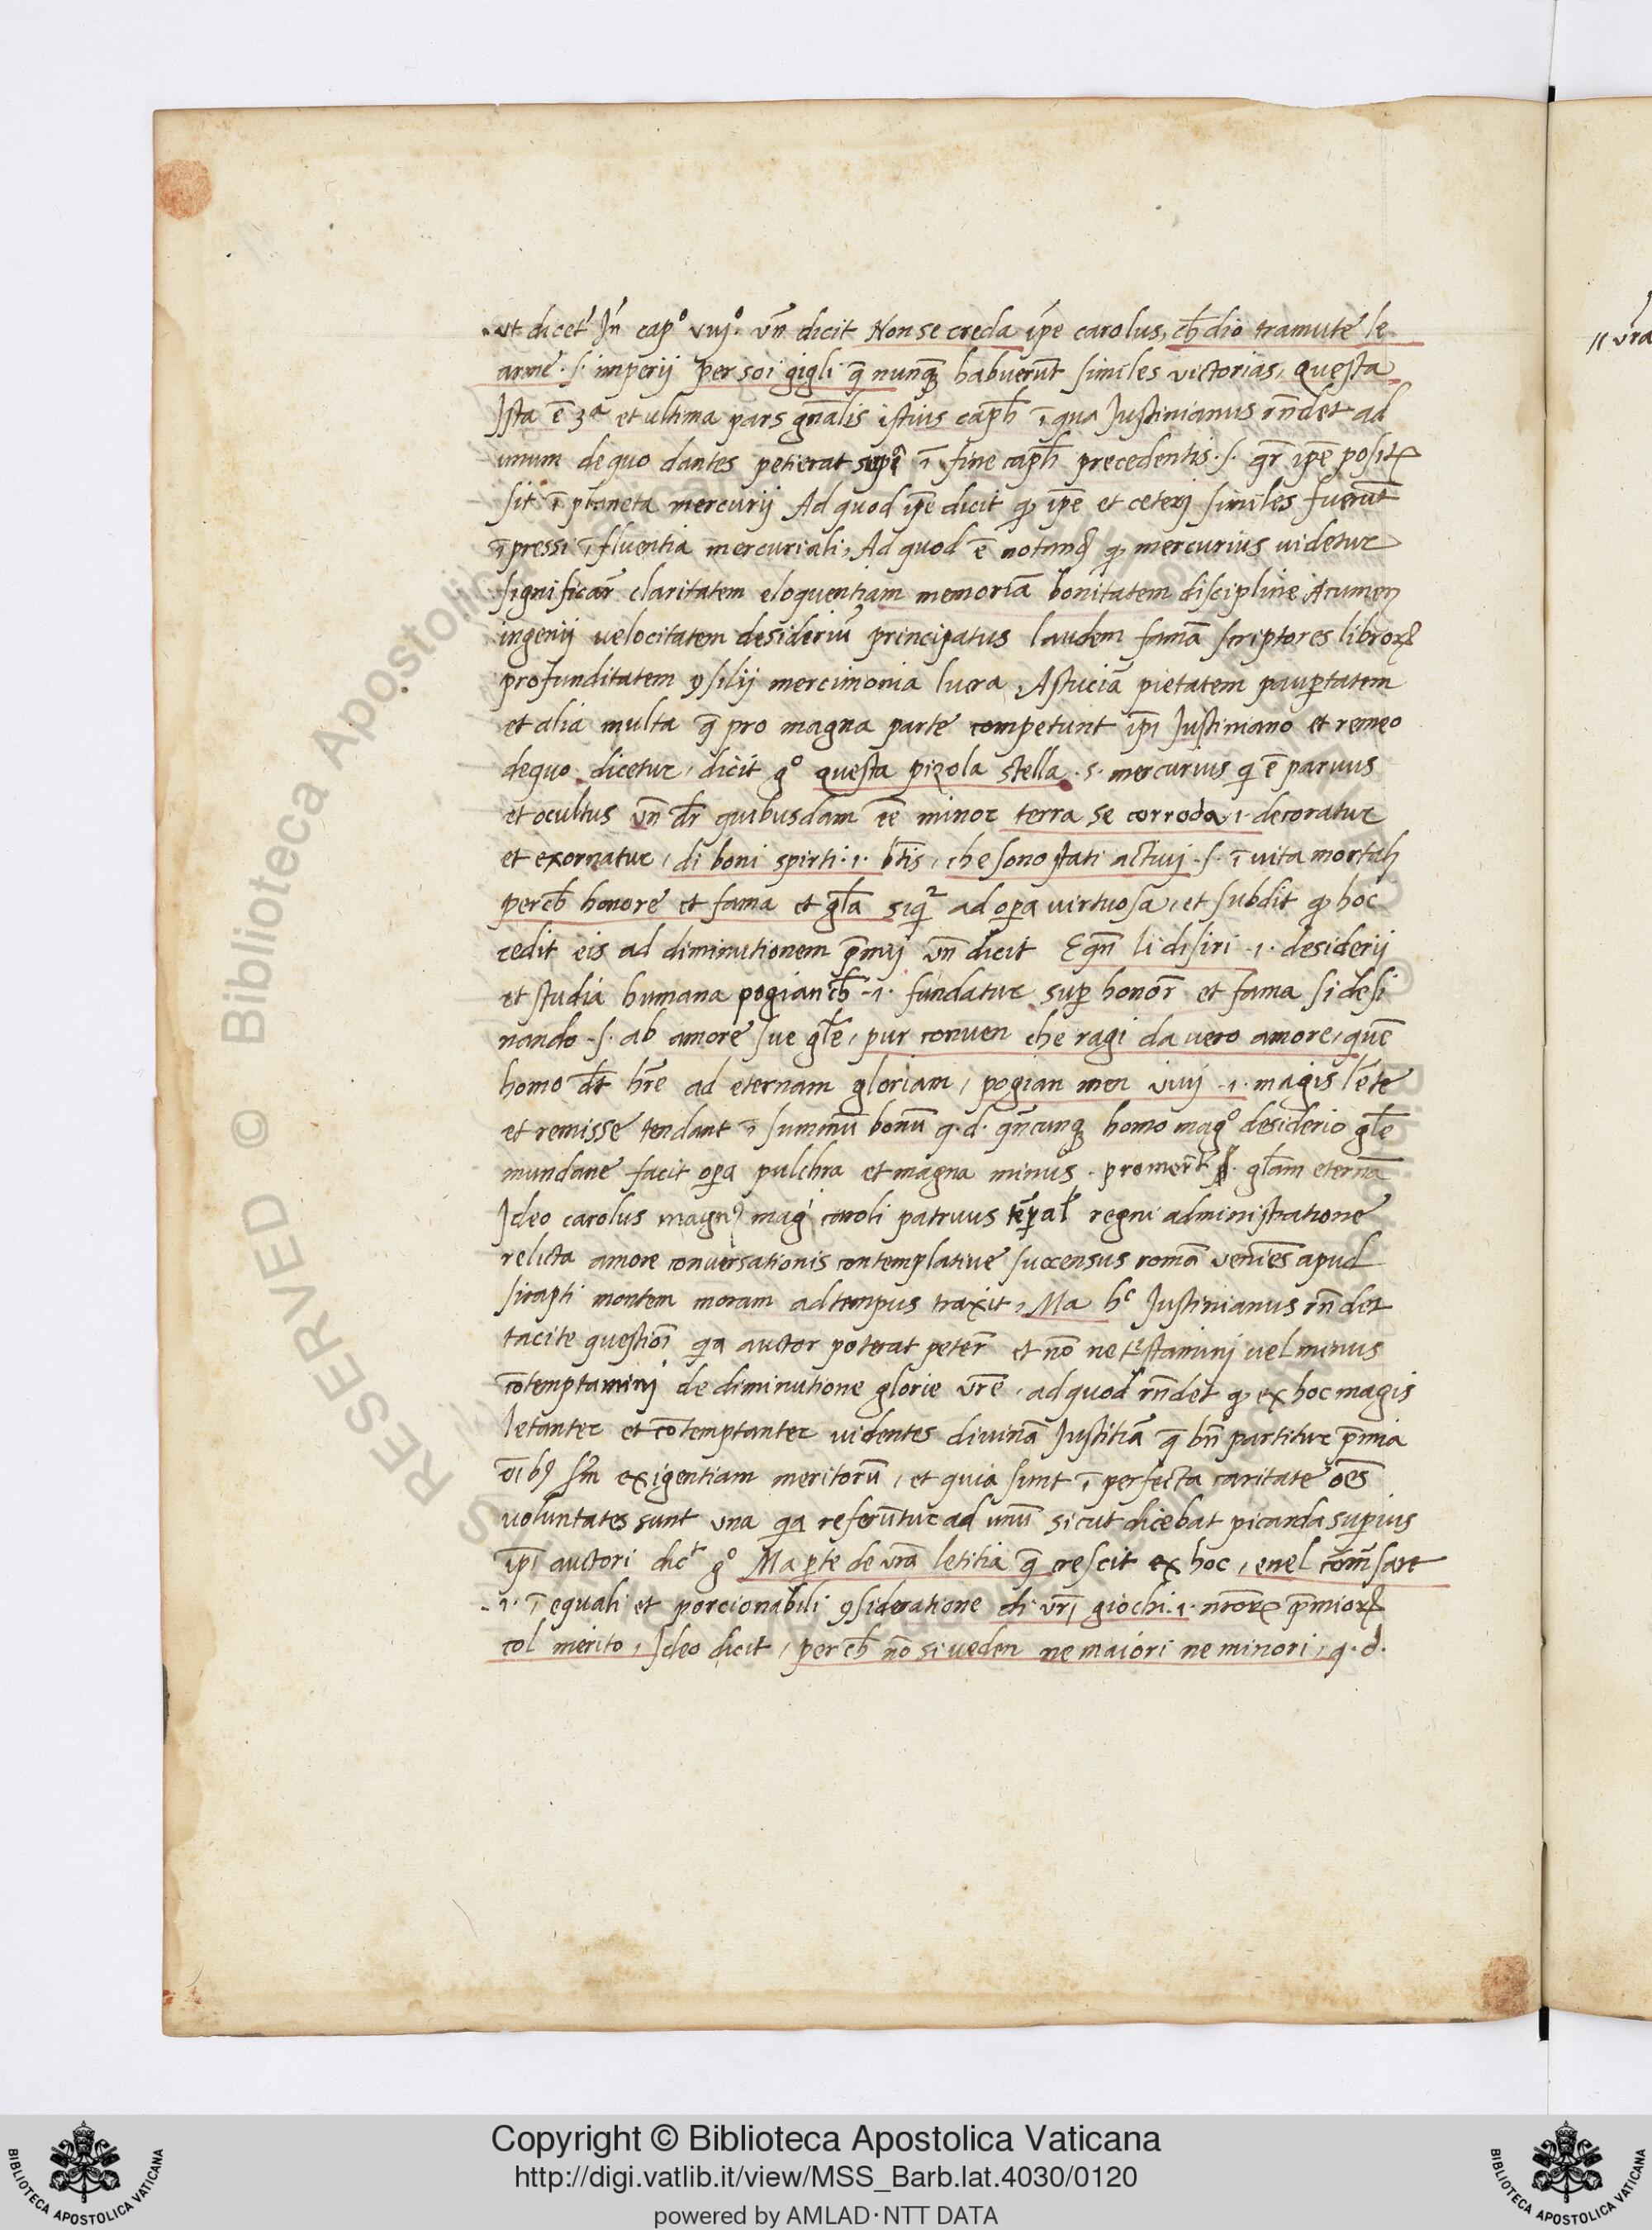 ut dicet' Jn̄ cap° viij°. vn̄ dicit Non se creda ip̄e carolus, ch̄ dio tramute le
arme .s. imperij per soi gigli q̄ nunq̄ habuerūt similes victorias, questa
Jsta ē 3ª et ultima pars gn̄alis istius capl̄i ī qua Justinianus rn̄det ad
unum de quo dantes petierat sup̄ª ī fine capl̄i precedentis .s. qr̄ ip̄e posit9
sit ī planeta mercurij Ad quod ip̄e dicit ꝙ ip̄e et ceterj similes fuerūt
īpressi īfluentia mercuriali, Ad quod ē notand̄ ꝙ mercurius videtur
significar̄ claritatem eloquentiam memoriā bonitatem discipline Acumen
ingenij velocitatem desideriū principatus laudem famā scriptores libroꝝ
profunditatem ꝯsilij mercimonia lucra, Astuciā pietatem paup̄tatem
et alia multa q̄ pro magna parte competunt ip̄i Justiniano et remeo
de quo dicetur, dicit g° questa pizola stella .s. mercurius q̄ ē parvus
et ocultus vn̄ dr̄ quibusdam ēē minor terra se corroda .i. decoratur
et exornatur, di boni spirti .i. btīs, che sono stati activj .s. ī vita mortali
perch̄ honore et fama et gl̄a siq̄2 ad op̄a virtuosa, et subdit ꝙ hoc
cedit eis ad diminutionem p̄mij vn̄ dicit Eqn̄ li disiri .i. desiderij
et studia humana pogian ch̄ .i. fundatur sup̄ honor̄ et fama si desi
nando .s. ab amore sue gl̄e, pur conven che ragi da vero amore, quē
homo dt̄ hr̄e ad eternam gloriam, pogian men vivj .i. magis lēte
et remisse tendant ī summū bonū q.d. qn̄cunq̄ homo mag° desiderio gl̄e
mundane facit op̄a pulchra et magna minus promeret' gl̄am eternā
Jdeo carolus magn9 mag' caroli patruus tēp̄al' regni administratione
relicta amore conversationis contemplative succensus romā veniēs apud
sirapti montem moram ad tempus traxit, Ma hᶜ Justinianus rn̄det
tacite questioī q̄a auctor poterat peter̄ et nō ne tristaminj vel minus
cōtemptaminj de diminutione glorie vr̄e, ad quod rn̄det ꝙ ex hoc magis
letanter et cōtemptanter videntes divinā Justitiā q̄ bn̄ partitur p̄mia
oīb9 sm̄ exigentiam meritorū, et quia sunt ī perfecta caritate oēs
voluntates sunt una q̄a referūtur ad unū sicut dicebat picarda sup̄ius
ip̄i auctori dicᵗ g° Ma p̄te de vr̄a letitia q̄ crescit ex hoc, enel com̄sare
.i. ī equali et porcionabili ꝯsideratione di vr̄i giochi .i. nr̄oꝝ p̄mioꝝ
col merito, Jdeo dicit, perch̄ nō si veden ne maiori ne minori, q.d.
Copyright © Biblioteca Apostolica Vaticana
http://digi.vatlib.it/view/MSS_Barb.lat.4030/0120
powered by AMLAD·NTT DATA